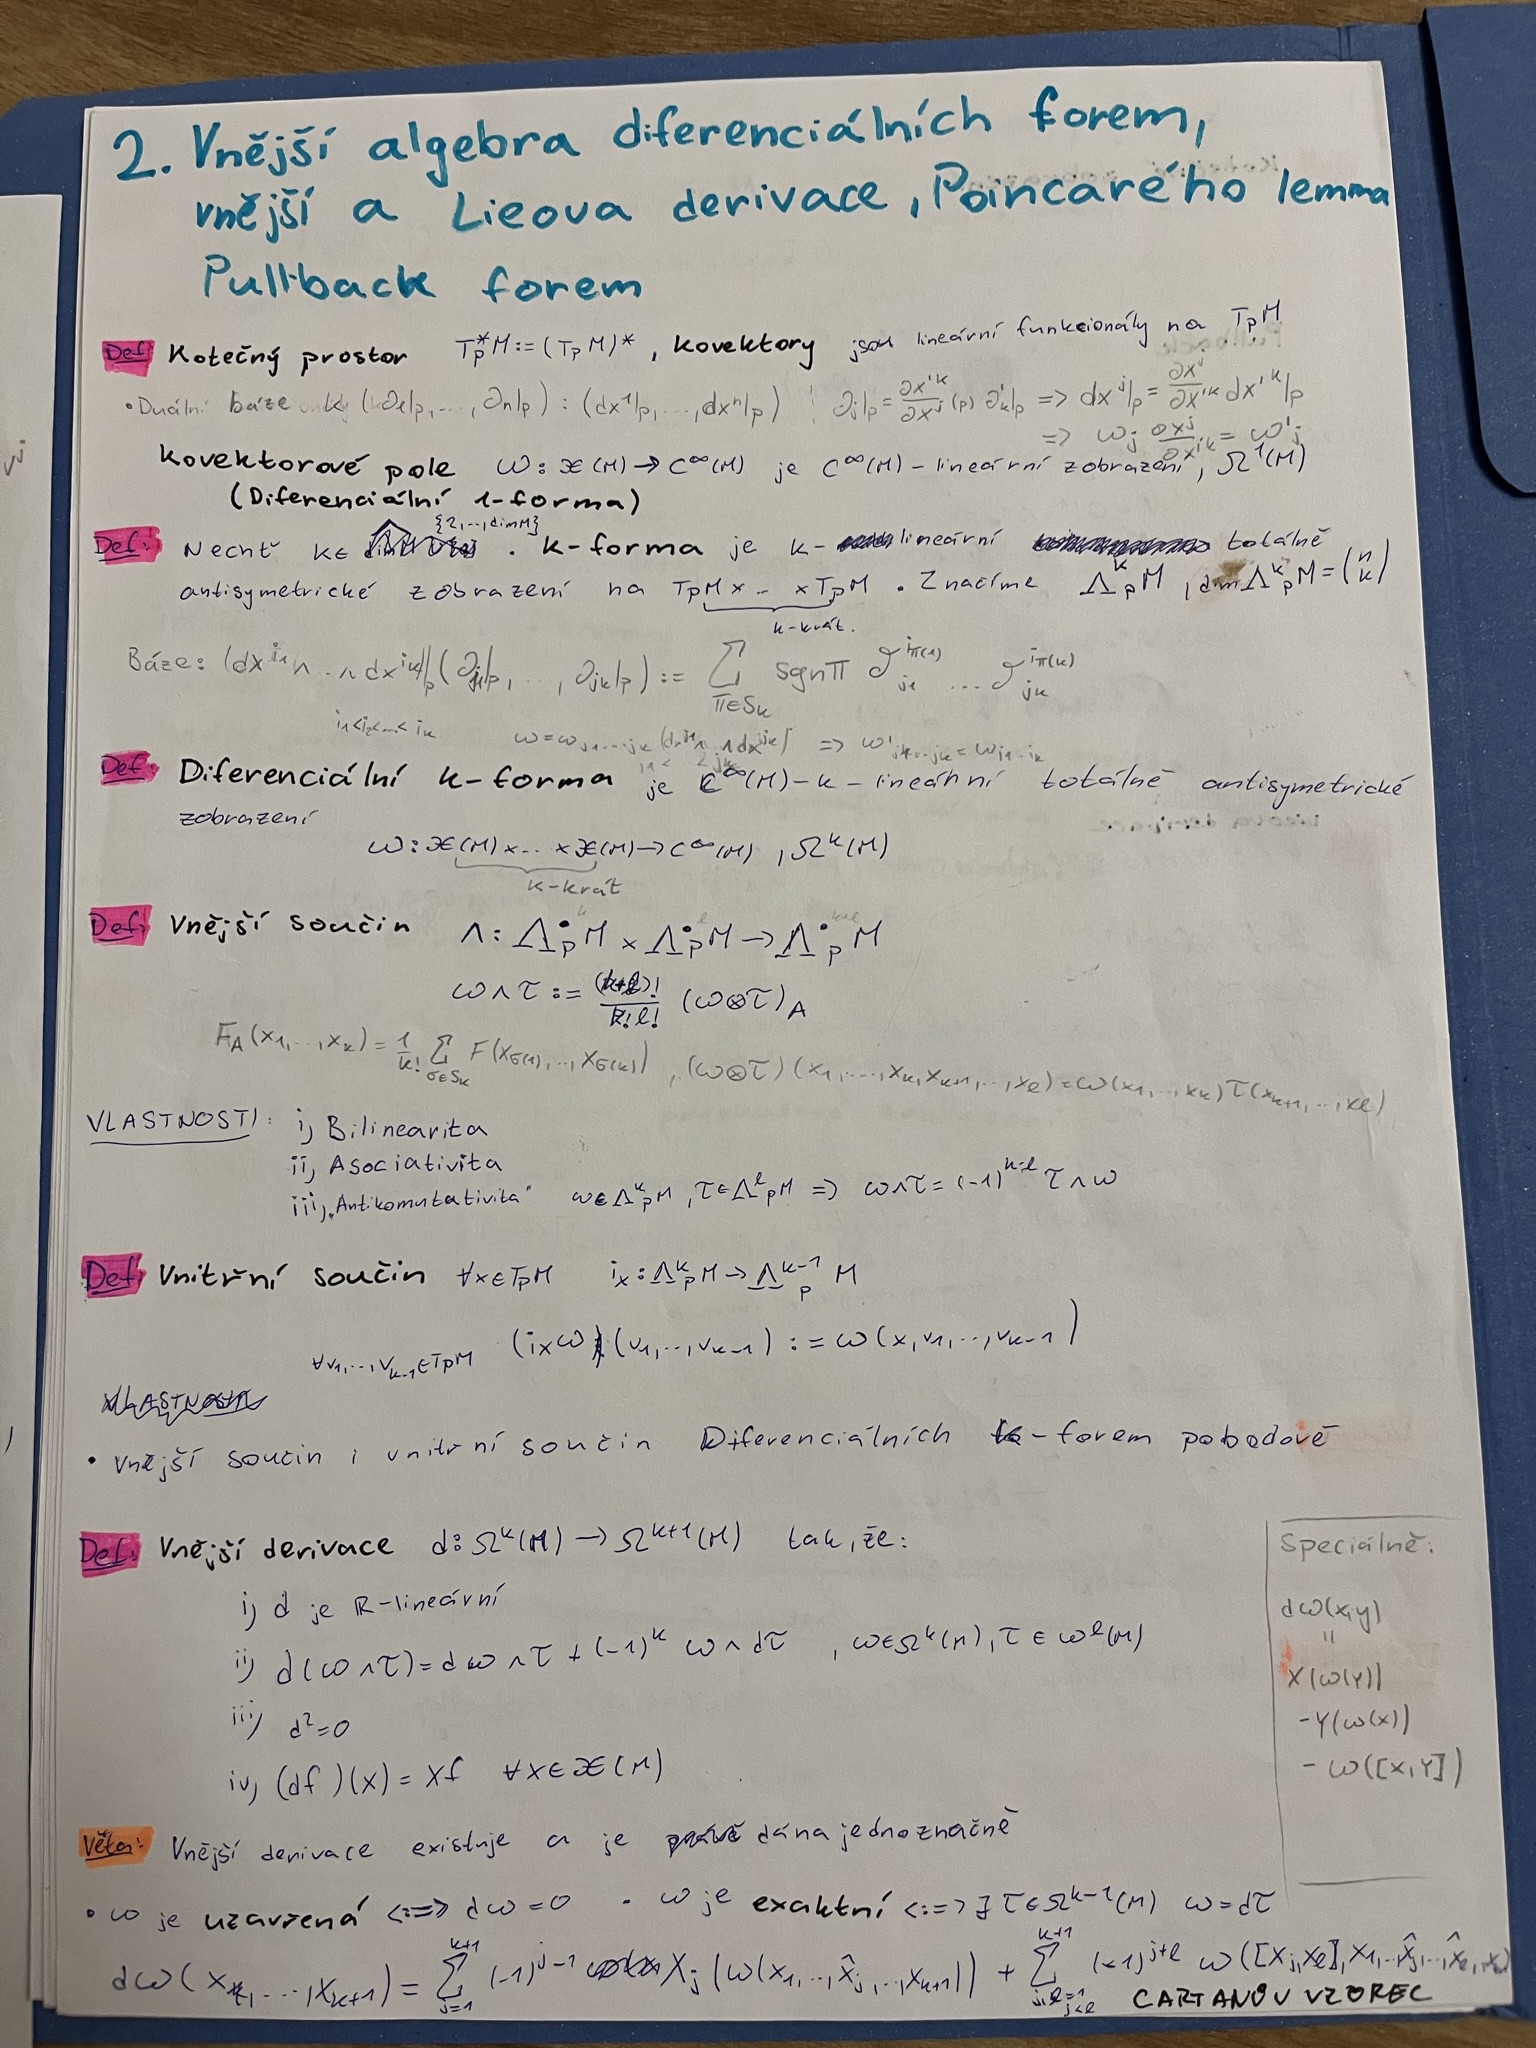 2. Vnější algebra diferenciálních forem,
vnější a Lieova derivace, Poincarého lemma
Pullback forem
Def: Kotečný prostor T_p^*M := (T_pM)^*, kovektory jsou lineární funkcionály na T_pM
• Duální báze k (∂_1|_p, ..., ∂_n|_p) : (dx^1|_p, ..., dx^n|_p) ∂_j|_p = ∂x'^k/∂x^j (p) ∂'_k|_p => dx^j|_p = ∂x^j/∂x'^k dx'^k|_p
=> ω_j ∂x^j/∂x'^k = ω'_j
Kovektorové pole ω: 𝔛(M) → C^∞(M) je C^∞(M)-lineární zobrazení, Ω^1(M)
(Diferenciální 1-forma)
Def: Nechť k ∈ {2, .., dim M}. k-forma je k-lineární totálně
antisymetrické zobrazení na T_pM × .. × T_pM. Značíme Λ^k_p M, dim Λ^k_p M = (n k)
k-krát.
Báze: (dx^{i_1} ∧ .. ∧ dx^{i_k})|_p (∂_{j_1}|_p, .., ∂_{j_k}|_p) := Σ_{π∈S_k} sgn π δ^{i_{π(1)}}_{j_1} ... δ^{i_{π(k)}}_{j_k}
i_1 < i_2 < ... < i_k
Def: Diferenciální k-forma je C^∞(M)-k-lineární totálně antisymetrické
zobrazení
ω: 𝔛(M) × ... × 𝔛(M) → C^∞(M), Ω^k(M)
k-krát
Def: Vnější součin ∧: Λ^•_p M × Λ^•_p M → Λ^•_p M
ω∧τ := (k+l)!/k!l! (ω⊗τ)_A
F_A(x_1, .., x_k) = 1/k! Σ_{σ∈S_k} F(x_{σ(1)}, .., x_{σ(k)}), (ω⊗τ)(x_1, ..., x_k, x_{k+1}, .., x_l) = ω(x_1, .., x_k) τ(x_{k+1}, .., x_l)
VLASTNOSTI: i) Bilinearita
ii) Asociativita
iii) „Antikomutativita" ω∈Λ^k_p M, τ∈Λ^l_p M => ω∧τ = (-1)^{k·l} τ∧ω
Def: Vnitřní součin ∀x∈T_pM i_x: Λ^k_p M → Λ^{k-1}_p M
∀v_1, .., v_{k-1}∈T_pM (i_xω)(v_1, .., v_{k-1}) := ω(x, v_1, .., v_{k-1})
• Vnější součin i vnitrní součin Diferenciálních k-forem pobodově
Def: Vnější derivace d: Ω^k(M) → Ω^{k+1}(M) tak, že:
i) d je ℝ-lineární
ii) d(ω∧τ) = dω∧τ + (-1)^k ω∧dτ, ω∈Ω^k(M), τ∈ω^l(M)
iii) d²=0
iv) (df)(X) = Xf ∀X∈𝔛(M)
Speciálně:
dω(x,y)
=
X(ω(Y))
-Y(ω(X))
-ω([X,Y])
Věta: Vnější derivace existuje a je dána jednoznačně
• ω je uzavřená <:=> dω=0 • ω je exaktní <:=> ∃ τ∈Ω^{k-1}(M) ω=dτ
dω(X_1, ..., X_{k+1}) = Σ_{j=1}^{k+1} (-1)^{j-1} X_j(ω(X_1, .., X̂_j, .., X_{k+1})) + Σ_{j,l=1 j<l}^{k+1} (-1)^{j+l} ω([X_j,X_l], X_1, .. X̂_j, .., X̂_l, ..
CARTANŮV VZOREC